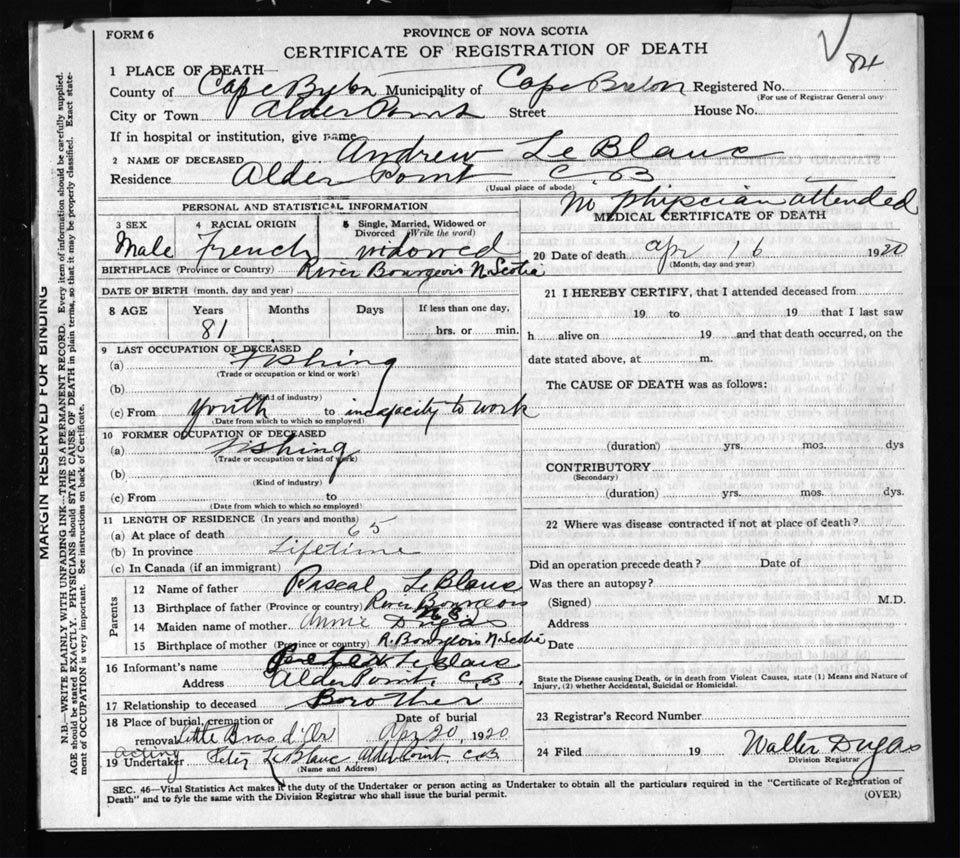 FORM 6
PROVINCE OF NOVA SCOTIA
CERTIFICATE OF REGISTRATION OF DEATH
84
1 PLACE OF DEATH
County of Cape Breton Municipality of Cape Breton Registered No.
(For use of Registrar General only)
City or Town Alder Point Street House No.
If in hospital or institution, give name
2 NAME OF DECEASED Andrew LeBlanc
Residence Alder Point C.B
(Usual place of abode)
No physcian attended
PERSONAL AND STATISTICAL INFORMATION
3 SEX 4 RACIAL ORIGIN 5 Single, Married, Widowed or
Divorced (Write the word)
Male French widowed
BIRTHPLACE (Province or Country) River Bourgeois N. Scotia
DATE OF BIRTH (month, day and year)
8 AGE Years Months Days If less than one day,
81 hrs. or min.
9 LAST OCCUPATION OF DECEASED
(a) Fishing
(Trade or occupation or kind or work)
(b)
(Kind of industry)
(c) From youth to incapacity to work
(Date from which to which so employed)
10 FORMER OCCUPATION OF DECEASED
(a) Fishing
(Trade or occupation or kind of work)
(b)
(Kind of industry)
(c) From to
(Date from which to which so employed)
11 LENGTH OF RESIDENCE (In years and months)
(a) At place of death 65
(b) In province Lifetime
(c) In Canada (if an immigrant)
Parents
12 Name of father Pascal LeBlanc
13 Birthplace of father (Province or country) River Bourgeois
14 Maiden name of mother Annie Dugas
15 Birthplace of mother (Province or country) R. Bourgeois N. Scotia
16 Informant's name LeBlanc
Address Alder Point, C.B.
17 Relationship to deceased Borother
18 Place of burial, cremation or Date of burial
removal Little Bras d'Or Apr 20, 1920
acting
19 Undertaker Peter LeBlanc Alder Point C.B
(Name and Address)
MEDICAL CERTIFICATE OF DEATH
20 Date of death Apr 16 1920
(Month, day and year)
21 I HEREBY CERTIFY, that I attended deceased from
19 to 19 that I last saw
h alive on 19 and that death occurred, on the
date stated above, at m.
The CAUSE OF DEATH was as follows:
(duration) yrs. mos. dys
CONTRIBUTORY
(Secondary)
(duration) yrs. mos. dys.
22 Where was disease contracted if not at place of death?
Did an operation precede death? Date of
Was there an autopsy?
(Signed) M.D.
Address
Date
State the Disease causing Death, or in death from Violent Causes, state (1) Means and Nature of
Injury, (2) whether Accidental, Suicidal or Homicidal.
23 Registrar's Record Number
24 Filed 19 Walter Dugas
Division Registrar
SEC. 46—Vital Statistics Act makes it the duty of the Undertaker or person acting as Undertaker to obtain all the particulars required in the "Certificate of Registration of
Death" and to fyle the same with the Division Registrar who shall issue the burial permit. (OVER)
MARGIN RESERVED FOR BINDING
N.B.—WRITE PLAINLY WITH UNFADING INK—THIS IS A PERMANENT RECORD. Every item of information should be carefully supplied.
AGE should be stated EXACTLY. PHYSICIANS should STATE CAUSE OF DEATH in plain terms, so that it may be properly classified. Exact state-
ment of OCCUPATION is very important. See instructions on back of Certificate.